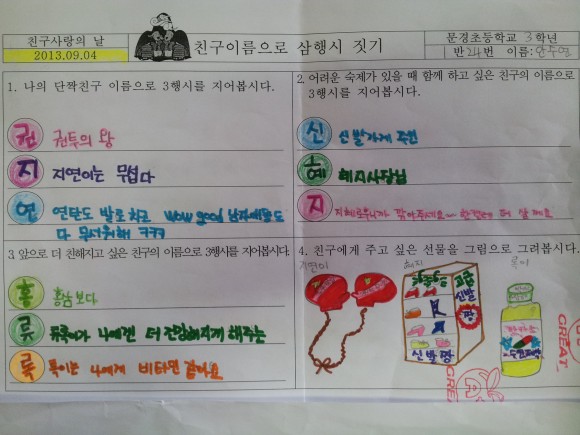 친구사랑의 날
2013.09.04
친구이름으로 삼행시 짓기
문경초등학교 3학년
1반 24번 이름:안수연
1. 나의 단짝친구 이름으로 3행시를 지어봅시다.
권 권투의 왕
지 지연이는 무섭다
연 연탄도 발로차고 wow good 남자애들도
다 무서워해 ㅋㅋㅋ
2. 어려운 숙제가 있을 때 함께 하고 싶은 친구의 이름으로
3행시를 지어봅시다.
신 신발가게 주인
혜 혜지사장님
지 지혜로우니까 깎아주세요~ 한켤레 더 살께요
3. 앞으로 더 친해지고 싶은 친구의 이름으로 3행시를 지어봅시다.
홍 홍삼보다
류 류록이가 나에겐 더 건강해지게 해주는
록 록이는 나에게 비타민 같아요
4. 친구에게 주고 싶은 선물을 그림으로 그려봅시다.
지연이
혜지
록이
고급
신발
짱
신발짱
GREAT
GREAT